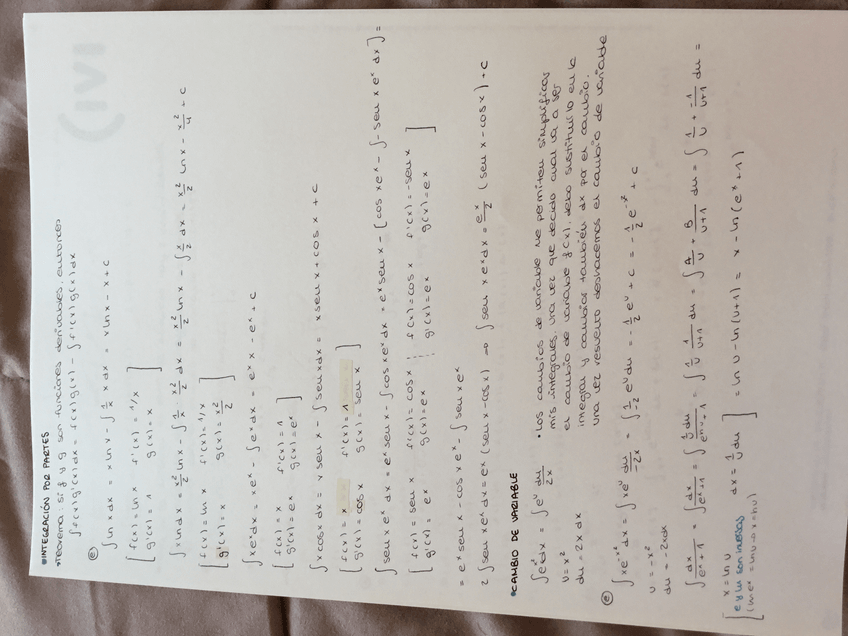 •INTEGRACIÓN POR PARTES
•Teorema: si f y g son funciones derivables, entonces
∫f(x)g'(x)dx = f(x)g(x) - ∫f'(x)g(x)dx
(e)
∫ln x dx = x ln x - ∫1/x x dx = x ln x - x + c
[f(x) = ln x f'(x) = 1/x
g'(x) = 1 g(x) = x]
∫x ln dx = x²/2 ln x - ∫1/x · x²/2 dx = x²/2 ln x - ∫x/2 dx = x²/2 ln x - x²/4 + c
[f(x) = ln x f'(x) = 1/x
g'(x) = x g(x) = x²/2]
∫xeˣdx = xeˣ - ∫eˣdx = eˣx - eˣ + c
[f(x) = x f'(x) = 1
g'(x) = ex g(x) = eˣ]
∫x cos x dx = x sen x - ∫sen x dx = x sen x + cos x + c
[f(x) = x f'(x) = 1
g'(x) = cos x g(x) = sen x]
∫sen x eˣ dx = eˣ sen x - ∫cos x eˣ dx = eˣ sen x - [cos x eˣ - ∫-sen x eˣ dx] =
[f(x) = sen x f'(x) = cos x f(x) = cos x f'(x) = -sen x
g'(x) = ex g(x) = ex g'(x) = ex g(x) = ex]
= eˣ sen x - cos x eˣ - ∫sen x eˣ
2∫sen x eˣ dx = ex (sen x - cos x) → ∫sen x eˣ dx = eˣ/2 (sen x - cos x) + c
•CAMBIO DE VARIABLE
∫eˣ²dx = ∫eᵘ du/2x
u = x²
du = 2x dx
•Los cambios de variable me permiten simplificar
mis integrales. Una vez que decido cual va a ser
el cambio de variable f(x), debo sustituirlo en la
integral y cambiar también dx por el cambio.
Una vez resuelto deshacemos el cambio de variable
(e)
∫xe⁻ˣ²dx = ∫xeᵘ du/-2x = ∫1/-2 eᵘ du = -1/2 eᵘ + c = -1/2 e⁻ˣ² + c
u = -x²
du = -2x dx
∫dx/eˣ+1 ∫dx/eˣ+1 = ∫1/u du/eˡⁿᵘ+1 = ∫1/u 1/u+1 du = ∫A/u + B/u+1 du = ∫1/u + -1/u+1 du =
[x = ln u dx = 1/u du]
e y ln son inversas
(ln eˣ = ln u → x = ln u)
= ln u - ln(u+1) = x - ln(eˣ+1)